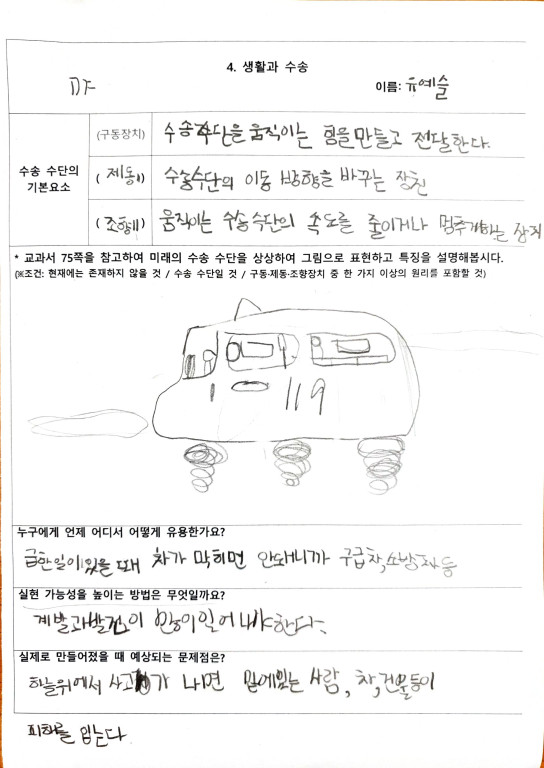 4. 생활과 수송
이름: 유예슬
수송 수단의 기본요소
(구동장치) 수송수단을 움직이는 힘을 만들고 전달한다.
(제동) 수송수단의 이동 방향을 바꾸는 장친
(조향) 움직이는 수송수단의 속도를 줄이거나 멈추게하는 장치
* 교과서 75쪽을 참고하여 미래의 수송 수단을 상상하여 그림으로 표현하고 특징을 설명해봅시다.
(※조건: 현재에는 존재하지 않을 것 / 수송 수단일 것 / 구동·제동·조향장치 중 한 가지 이상의 원리를 포함할 것)
119
누구에게 언제 어디서 어떻게 유용한가요?
급한일이있을 때 차가 막히면 안돼니까 구급차,소방차등
실현 가능성을 높이는 방법은 무엇일까요?
계발과발전이 많이일어나야한다.
실제로 만들어졌을 때 예상되는 문제점은?
하늘위에서 사고가 나면 밑에있는 사람, 차,건물등이
피해를 입는다